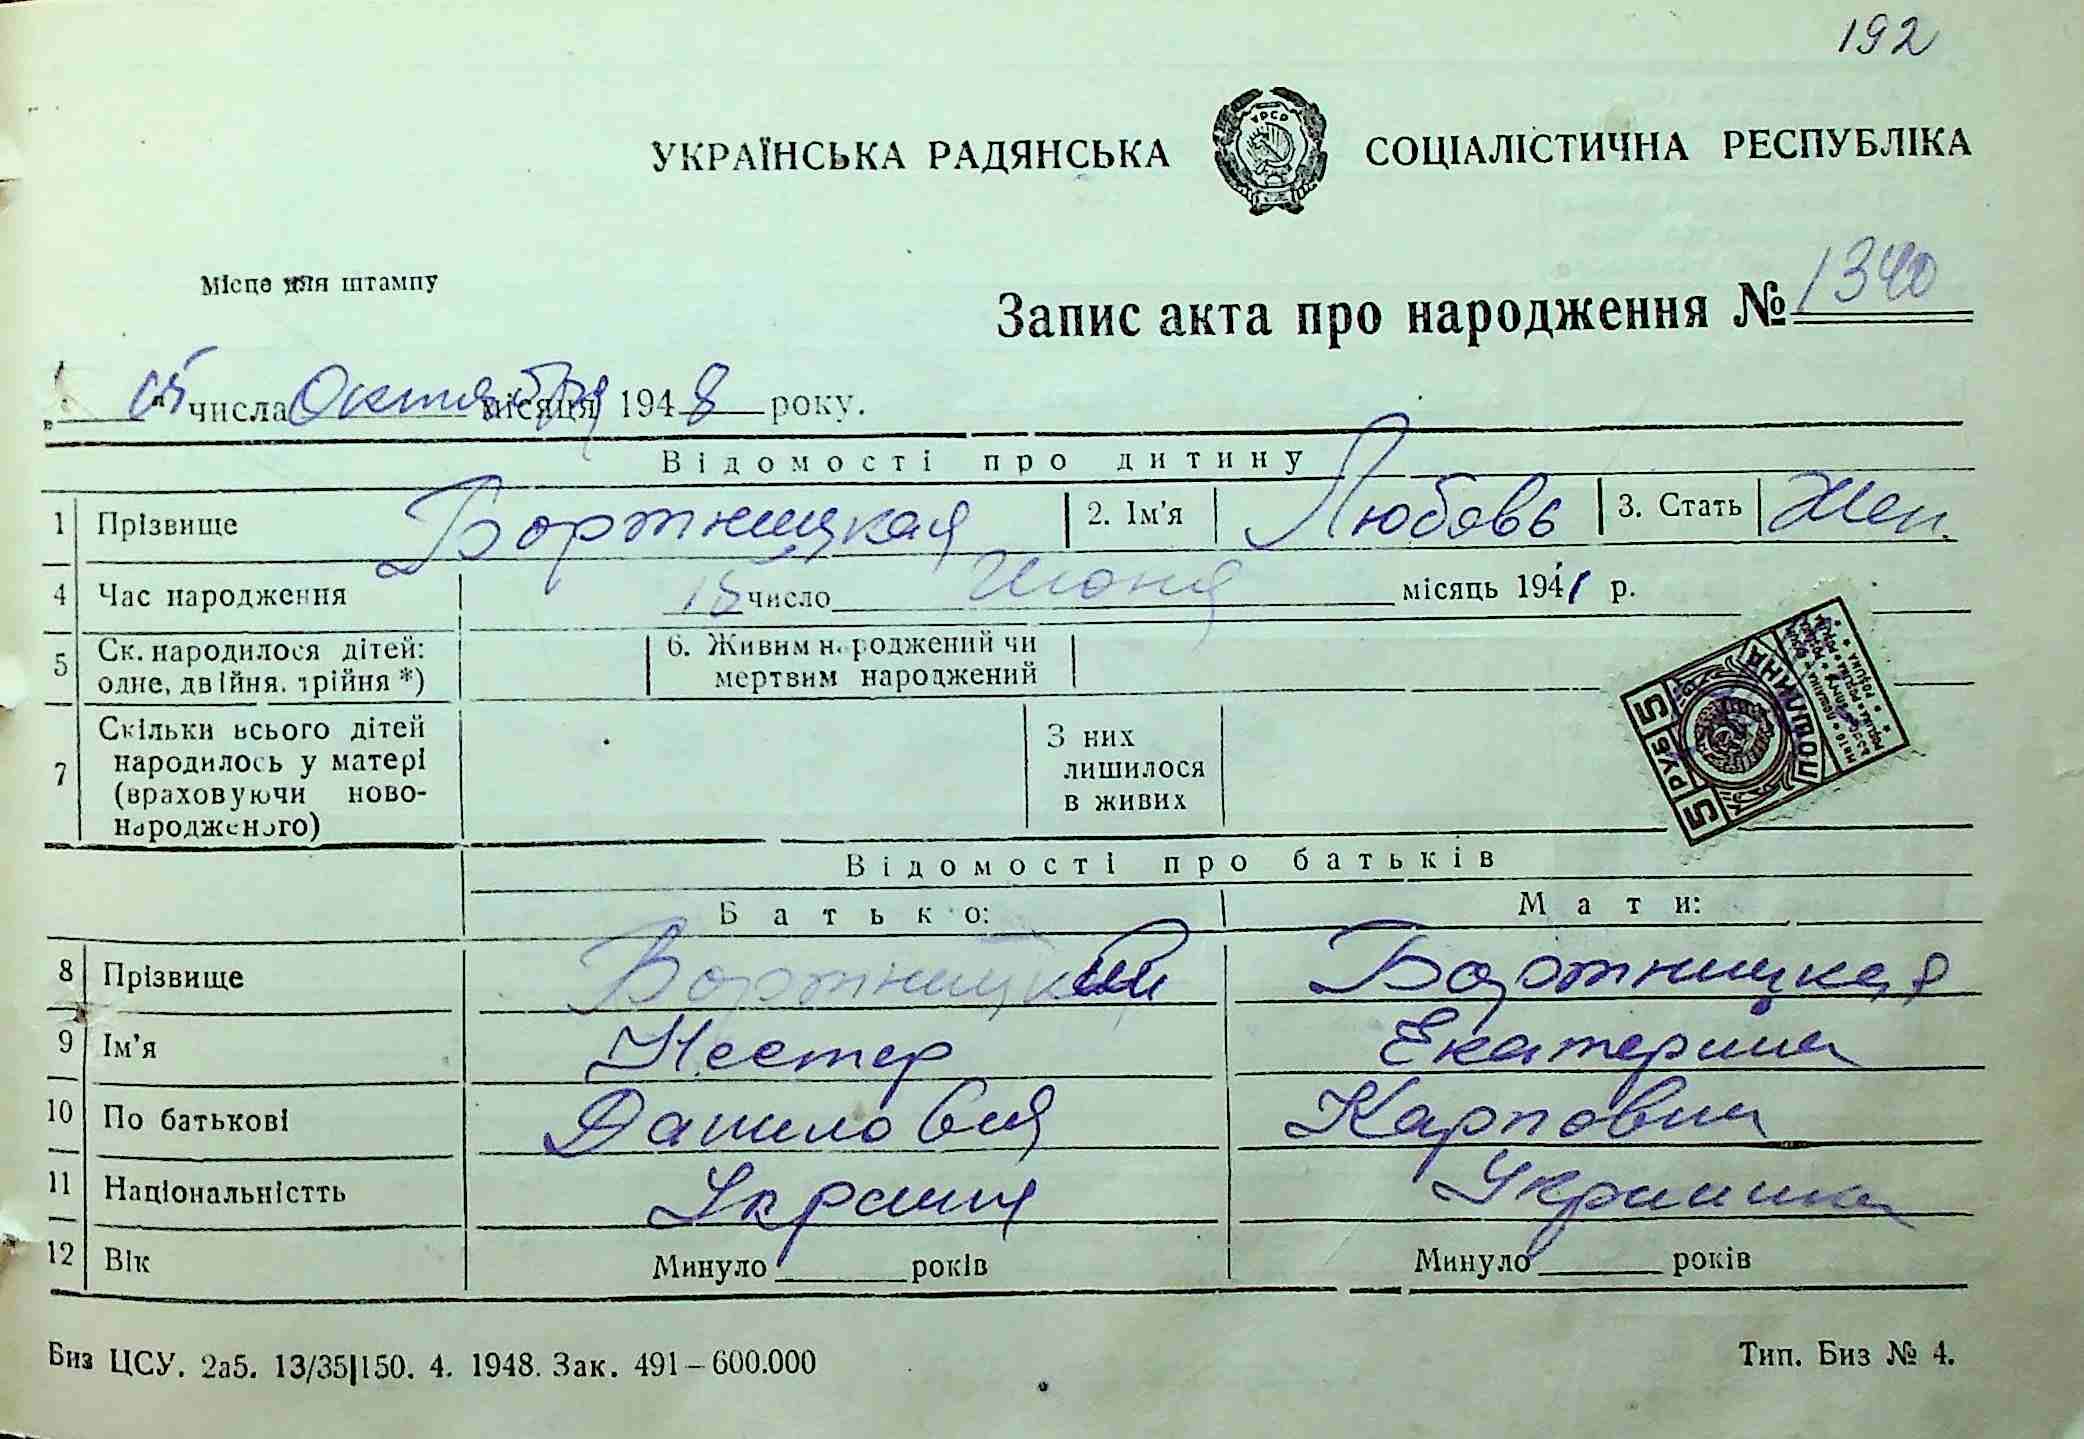 192
УКРАЇНСЬКА РАДЯНСЬКА СОЦІАЛІСТИЧНА РЕСПУБЛІКА
УРСР
Місце для штампу
Запис акта про народження № 1340
„ 15 " числа Октября місяця 1948 року.
Відомості про дитину
1 Прізвище Бортницкая 2. Ім'я Любовь 3. Стать Жен.
4 Час народження 15 число Июня місяць 1941 р.
5 Ск. народилося дітей: одне, двійня, трійня *) 6. Живим народжений чи мертвим народжений
7 Скільки всього дітей народилось у матері (враховуючи новонародженого) З них лишилося в живих
5 РУБ 5
ПОШЛИНА
Відомості про батьків
Батько: Мати:
8 Прізвище Бортницкий Бортницкая
9 Ім'я Нестер Екатерина
10 По батькові Данилович Карповна
11 Національністть Украин Украинка
12 Вік Минуло років Минуло років
Биз ЦСУ. 2а5. 13/35|150. 4. 1948. Зак. 491 – 600.000 Тип. Биз № 4.